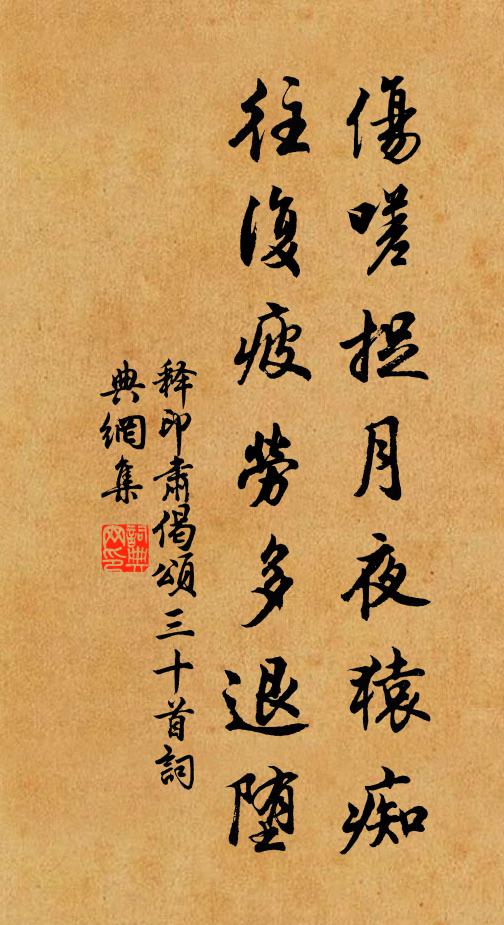 傷嗟捉月夜猿痴
往復疲勞多退墮
釋印肅偈頌三十首詞
典網集
詞典網印